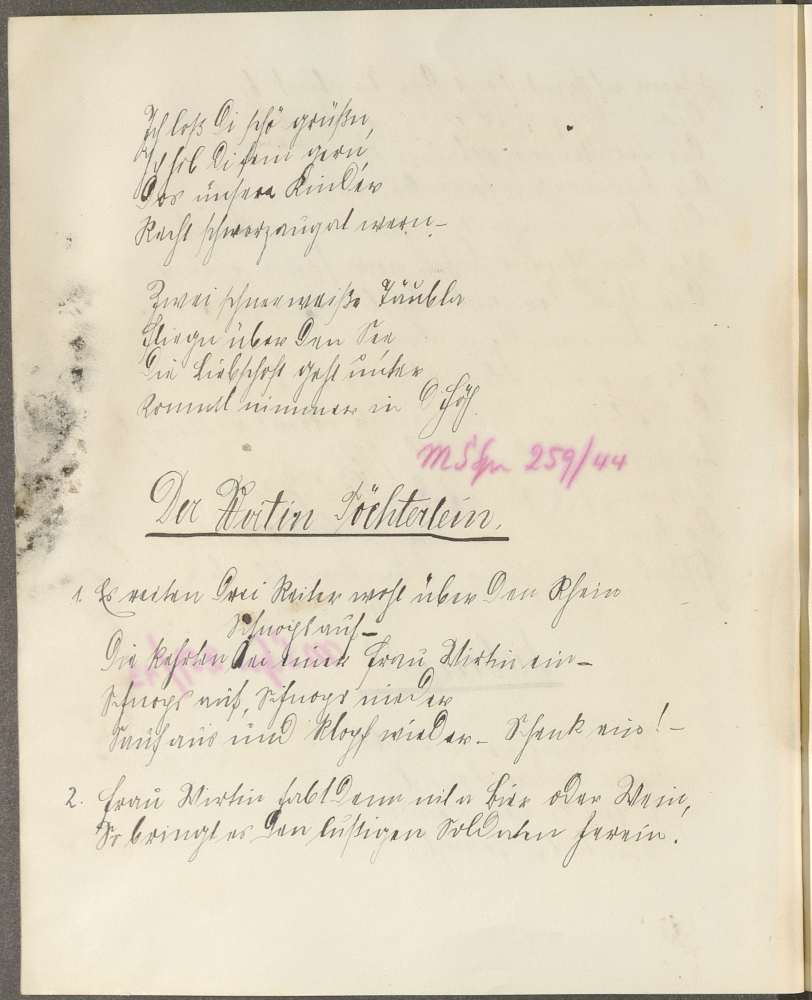 Ich loß Di schö grüßn,
Ich hob Di sein gern,
Dos unsere Kinder
Recht schworzaugat wern_
Zwei schneeweiße Täubla
Fliegn über den See
Die Liebschoft geht unter
Kommt nimmer in D' Höh.
MSgn 259/44
Der Wirtin Töchterlein.
1. Es reiten drei Reiter wohl über den Rhein
Schnaps auf_
Die kehrten bei einer Frau Wirtin ein_
Schnaps auf, Schnaps nieder
Sauf aus und klopf wieder_ Schenk ein!_
2. Frau Wirtin habt denn nit a Bier oder Wein,
So bringt es den lustigen Soldaten herein.